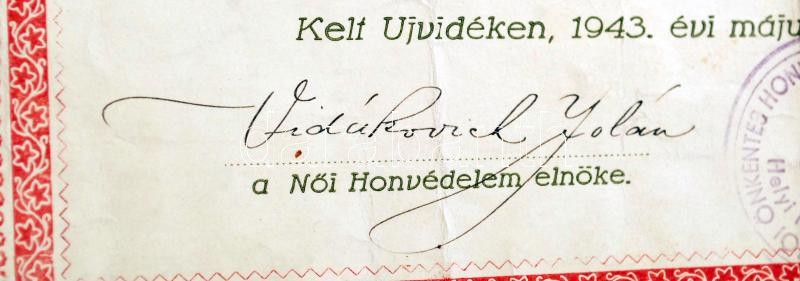 Kelt Ujvidéken, 1943. évi máju
Vidákovich Jolán
a Női Honvédelem elnöke.
ÖNKÉNTES HON
Helyi